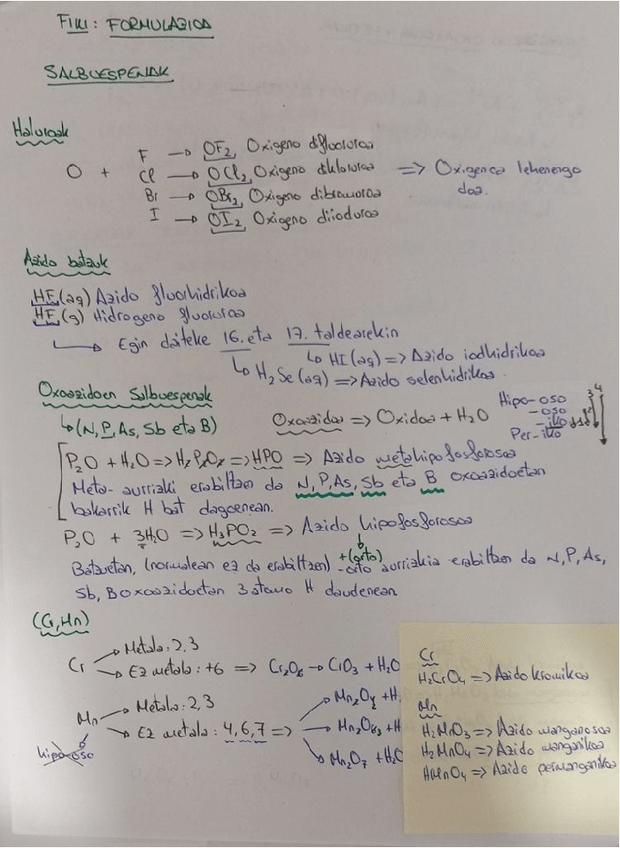 FIKI: FORMULAZIOA
SALBUESPENAK
Haluroak
O + F → OF2, Oxigeno difluoruroa
Cl → OCl2, Oxigeno dikloruroa => Oxigenoa lehenengo doa.
Br → OBr2, Oxigeno dibromuroa
I → OI2, Oxigeno diioduroa
Azido batzuk
HF(aq) Azido fluorhidrikoa
HF(g) Hidrogeno fluoruroa
→ Egin daiteke 16. eta 17. taldearekin
↳ HI(aq) => Azido iodhidrikoa
↳ H2Se(aq) => Azido selenhidrikoa
Oxoazidoen Salbuespenak
↳ (N, P, As, Sb eta B)
Oxoazidoa => Oxidoa + H2O
Hipo-oso
-oso
-iko
Per-iko
3 4
P2O + H2O => H2P2O2 => HPO => Azido metahipofosforosoa
Meta- aurrizki erabiltzen da N, P, As, Sb eta B oxoazidoetan
bakarrik H bat dagoenean.
P2O + 3H2O => H3PO2 => Azido hipofosforosoa
+(orto)
Batzuetan, (normalean ez da erabiltzen) -orto aurrizkia erabiltzen da N, P, As,
Sb, B oxoazidoetan 3 atomo H daudenean
(Cr, Mn)
Cr → Metala: 2, 3
→ Ez metala: +6 => Cr2O6 → CrO3 + H2O
Mn → Metala: 2, 3
→ Ez metala: 4, 6, 7 => Mn2O4 + H
Mn2O6 + H
Mn2O7 + H2O
hipo-oso
Cr
H2CrO4 => Azido kromikoa
Mn
H2MnO3 => Azido manganosoa
H2MnO4 => Azido manganikoa
HMnO4 => Azido permanganikoa